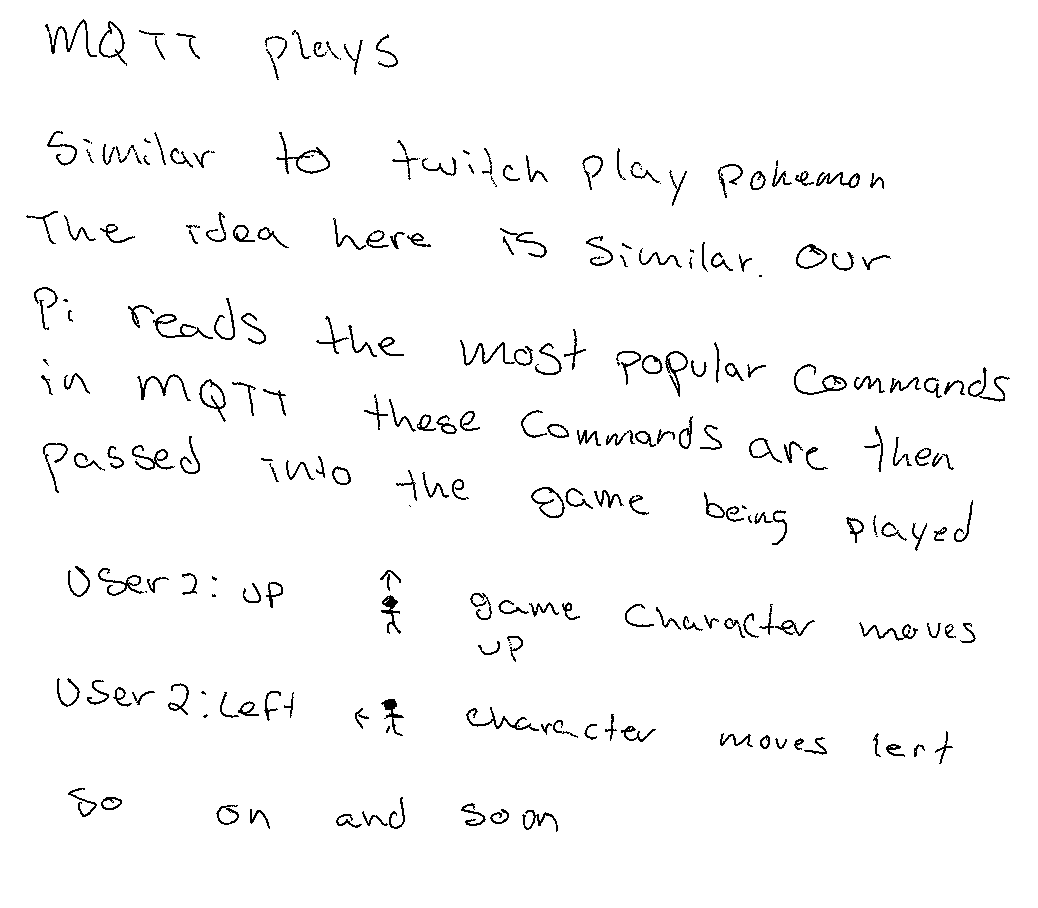 MQTT plays
Similar to twitch play pokemon
The idea here is similar. Our
Pi reads the most popular commands
in MQTT these commands are then
passed into the game being played
User 2: UP ↑ game character moves
UP
User 2: Left ← character moves lert
so on and soon